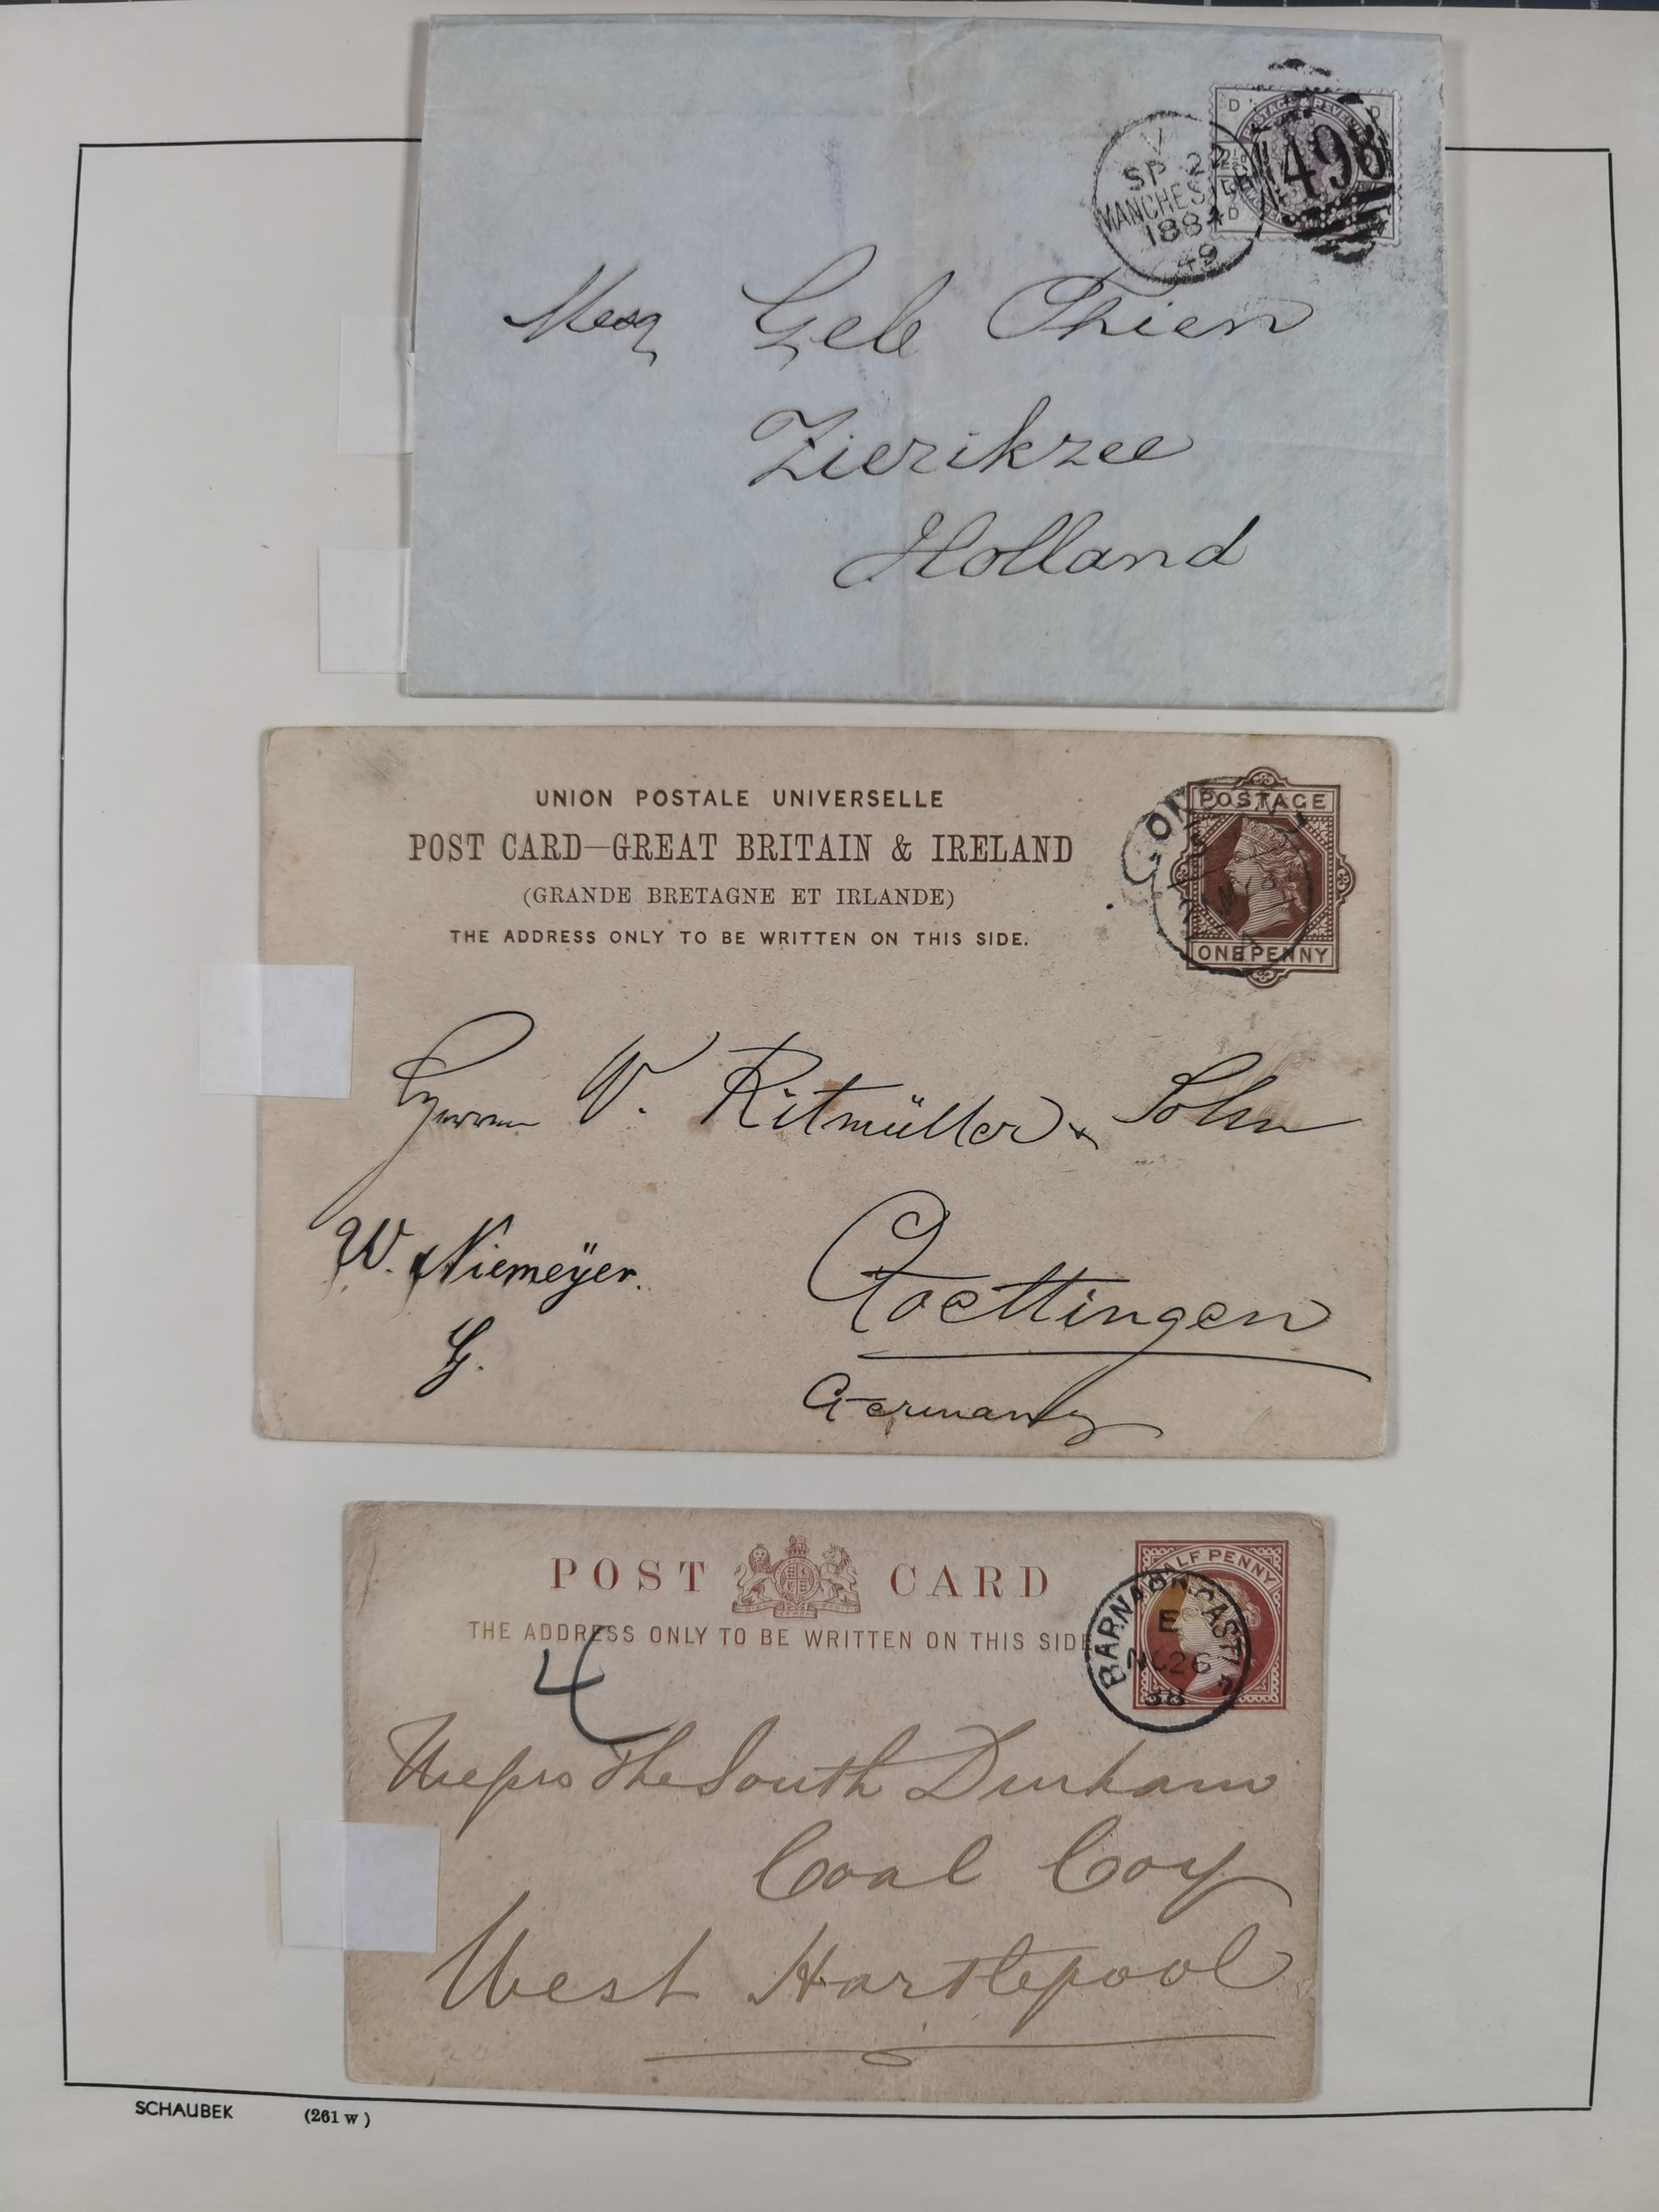 V
SP 22
MANCHESTER
1884
49
498
D D
POSTAGE & REVENUE
D
Mess Geb Thien
Zierikzee
Holland
UNION POSTALE UNIVERSELLE
POST CARD—GREAT BRITAIN & IRELAND
(GRANDE BRETAGNE ET IRLANDE)
THE ADDRESS ONLY TO BE WRITTEN ON THIS SIDE.
POSTAGE
ONE PENNY
W. Ritmüller & Sohn
W. Niemeÿer.
G.
Goettingen
Germany
POST CARD
THE ADDRESS ONLY TO BE WRITTEN ON THIS SIDE
HALF PENNY
BARNARD CASTLE
E
NO 26
88
4
The South Durham
Coal Coy
West Hartlepool
SCHAUBEK (261 w)